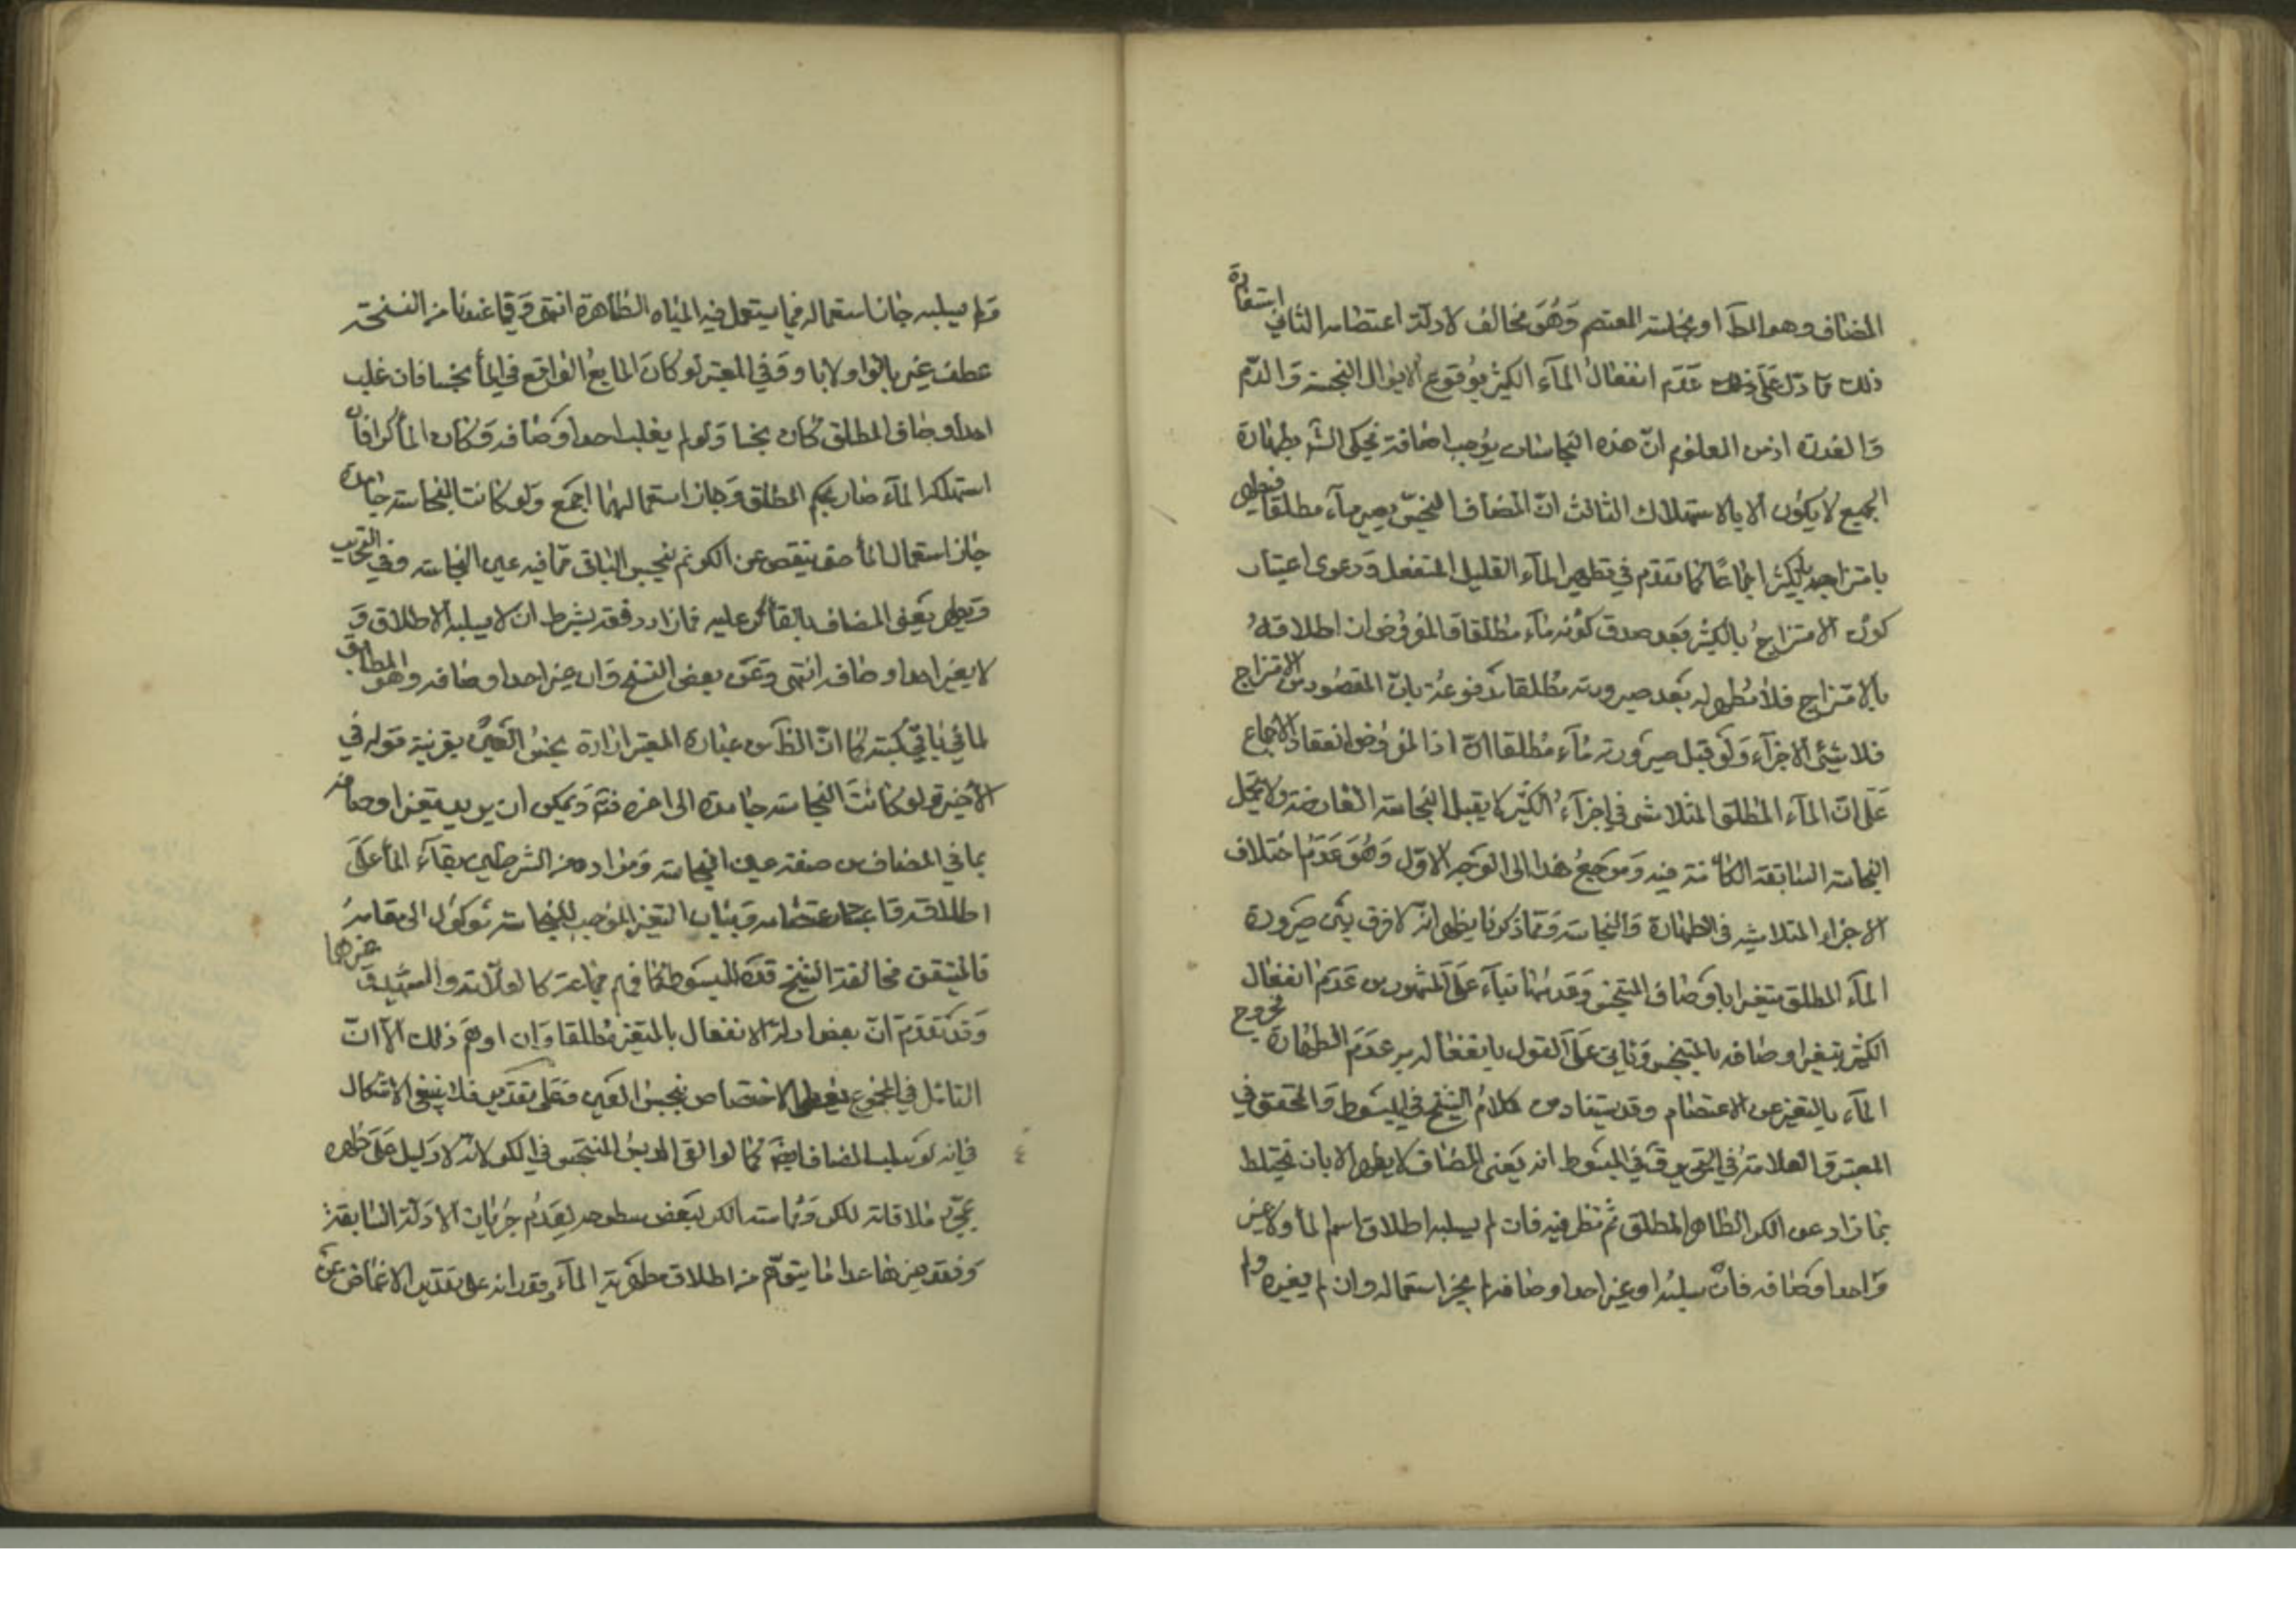 المضاف وهو المط او نجاسته المعتصم وَهُوَ مخالف لادلة اعتصامه الثاني استفادة
ذلك ممّا دلّ على ذلك عَدَم انفعال المآء الكثير بوُقوع الابوال النجسة وَالدّم
وَالعذرة اذ من المعلوم انّ هذه النجاسات يوُجب اضافة فيحكم الش بطهارة
الجميع لا يكون الا بالاستهلاك الثالث انّ المضاف النجس يصير مآء مطلقا فيطهر
بامتزاجه بالكثير اجماعًا كما تقدم في تطهير المآء القليل المنفعل وَدعوى اعتبار
كون الامتزاج بالكثير بَعد صدق كوُنه مآء مُطلقا وَالمفروض ان اطلاقهُ
بالامتزاج فلا مُطهر له بَعد صيرورته مُطلقا مَدفوعة بانّ المقصود من الامتزاج
تلاشي الاجزآء وَلَو قبل صيرَورته مآء مُطلقا اذ المفرُوض انعقاد الاجماع
عَلى انّ المآء المطلق المتلاشي في اجزآء الكثير لا يقبل النجاسة العارضة ولا يتحمل
النجاسة السّابقة الكائنة فيه وَمرجعُ هذا الى الوَجه الاوّل وَهُوَ عَدَمُ اختلاف
الاجزاء المتلاشية في الطهارة وَالنجاسة وَممّا ذكرنا يظهر انّه لا فرق بَيْن صَيرُورة
المآء المطلق متغيرا باوَصاف المتنجس وَعَدمها بنآء عَلَى المشهور من عَدَم انفعال
الكثير بتغير اوصافه بالمتنجس وَياتي عَلَى القول بانفعاله به عَدَم الطهارة لخروج
المآء بالتغير عن الاعتصام وقد يستفاد من كلام الشيخ في المبسُوط وَالمحقق في
المعتبر وَالعلامة في التحرير قَ في المبسُوط انه يَعنى المضاف لا يطهر الا بان يختلط
بما زاد عن الكر الطاهر المطلق ثم ننظر فيه فان لم يسلبه اطلاق اسم المآء ولا غير
وَاحدا وَصافه فانْ سلبُه او غير احد اوصافه لم يجز استعماله وان لم يغيره ولم
وَلم يسلبه جاز استعماله فيما يستعمل فيه المياه الطاهرة انتهى وَفيما عندنا من النسخة
عطف غير بالواو لا باو وَفي المعتبر لو كانَ المايعُ الواقع في المآء نجسا فان غلب
احد اوصاف المطلق كان نجسا وَلو لم يغلب احد اوَصافه وَكان المآء كرا فان
استهلكه المآء صار بحكم المطلق وَجاز استعمالهما اجمَع ولو كانت النجاسة جامدة
جاز استعمال المآء حتى ينقص عن الكر ثم ينجس الباقي بما فيه عين النجاسة وفي التحرير
وَيطهر يَعني المضاف بالقآء كر عليه فما زاد دفعة بشرط ان لا يسلبه الاطلاق وَ
لا يغير احد اوصافه انتهى وَعَن بعض النسخ وَان غير احد اوصافه وهو المطابق
لما في باقي كتبه كما انّ الظَاهر من عبارة المعتبر ارادة نجس العَين بقرينة قوله في
الاخير وَلو كانت النجاسة جامدة الى اخره فتم وَيمكن ان يريد بتغير اوصافه
بما في المضاف من صفة عين النجاسة وَمراده من الشرطين بقآء المآء عَلَى
اطلاقه وَاعتبار عتصامه وَبيان التغير الموُجب للنجاسة موَكوُل الى مقامه
فالمتيقن مخالفة الشيخ قده في المبسُوط كما فهم جماعة كالعلّامة والشهيد وَغيرهما
وَقد تَقدّمَ انّ بعض ادلة الانفعال بالمتغير مُطلقا وَان اوهَمَ ذلك الّا انّ
التامّل في المجموع يعطى الاختصاص بنجس العَين وَعلى تقدير فلا ينبغي الاشكال
في انه لو يسلب المضاف ايضًا كما لو القى الدبس المتنجس في الكر لانّه لا دَليل عَلَى طهره
بمجرّد ملاقاته للكر وَمماسته الكر لبَعض سطوحه لعَدَم جرَيان الادلّة السّابقة
وَفقد غيرها عدا ما يتوهّم من اطلاق مطهّرية المآء وقد انه على تقدير الاغماض عَن